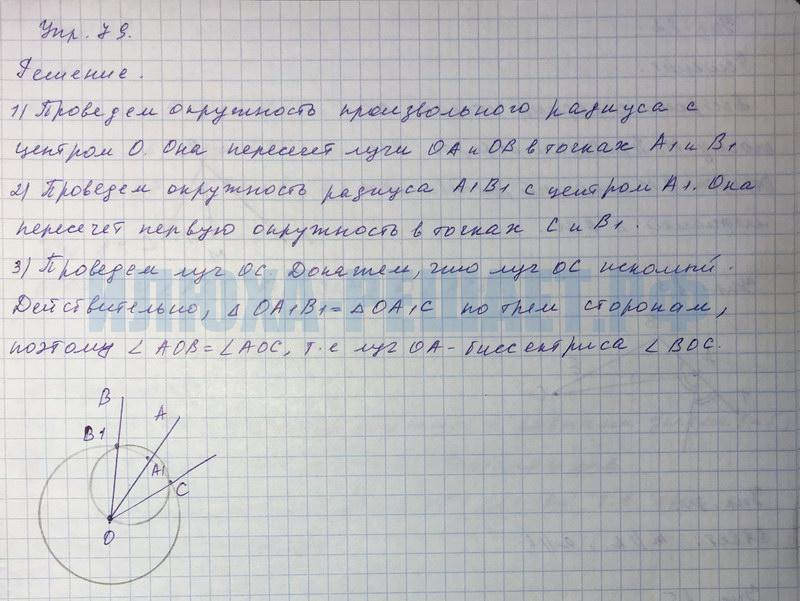 Упр. 79.
Решение.
1) Проведем окружность произвольного радиуса с
центром О. Она пересечет лучи ОА и ОВ в точках А1 и В1
2) Проведем окружность радиуса А1В1 с центром А1. Она
пересечет первую окружность в точках С и В1.
3) Проведем луч ОС. Докажем, что луч ОС искомый.
Действительно, △ ОА1В1 = △ ОА1С по трем сторонам,
поэтому ∠ АОВ = ∠АОС, т.е луч ОА - биссектриса ∠ ВОС.
В
А
В1
А1
С
О